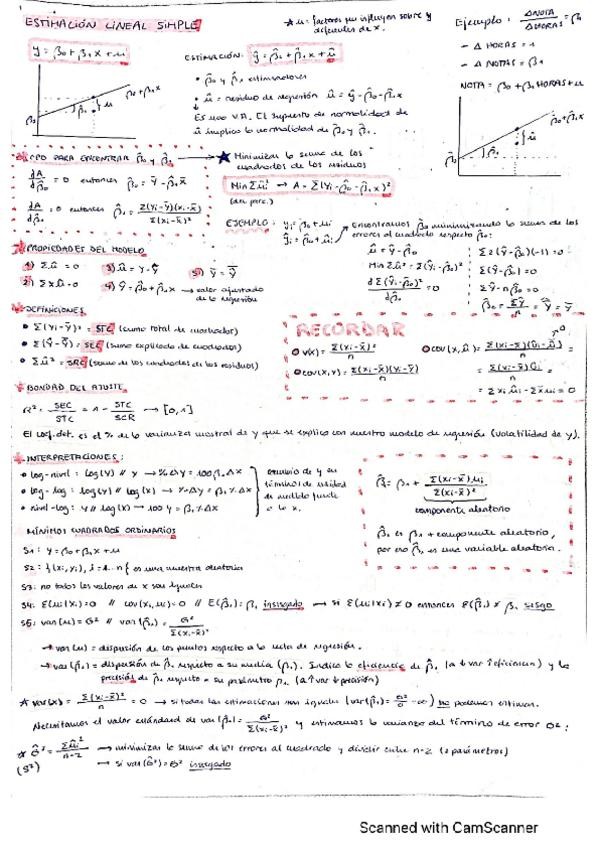 ESTIMACIÓN LINEAL SIMPLE
y = β₀ + β₁x + u
★ u: factores que influyen sobre y diferentes de x.
ESTIMACIÓN: ŷ = β̂₀ + β̂₁x + û
• β̂₀ y β̂₁ estimadores
• û = residuo de regresión û = ŷ - β̂₀ - β̂₁x
Es una VA. El supuesto de normalidad de
û implica la normalidad de β̂₀ y β̂₁.
Ejemplo: ΔNOTA / ΔHORAS = β₁
- Δ HORAS = 1
- Δ NOTAS = β₁
NOTA = β₀ + β₁HORAS + u
β₀ + β₁x
β₀ + β₁x
CPO PARA ENCONTRAR β̂₀ y β̂₁
★ Minimizar la suma de los
cuadrados de los residuos
dA/dβ̂₀ = 0 entonces β̂₀ = Ȳ - β̂₁X̄
dA/dβ̂₁ = 0 entonces β̂₁ = Σ(Yi-Ȳ)(xi-X̄) / Σ(xi-X̄)²
Min Σû² → A = Σ(Yi - β̂₀ - β̂₁xi)²
EJEMPLO: yi = β₀ + ui
ŷi = β̂₀ + ûi
Encontramos β̂₀ minimizando la suma de los
errores al cuadrado respecto β̂₀:
û = Ŷ - β̂₀
Min Σû² = Σ(Ŷi - β̂₀)²
dΣ(Ŷi - β̂₀)² / dβ̂₀ = 0
Σ2(Ŷ - β̂₀)(-1) = 0
Σ(Ŷ - β̂₀) = 0
ΣŶ - nβ̂₀ = 0
PROPIEDADES DEL MODELO
1) Σû = 0 3) û = Y - Ŷ
2) Σx·û = 0 4) Ŷ = β̂₀ + β̂₁x → valor ajustado
de la regresión
DEFINICIONES
• Σ(Yi-Ȳ)² = STC (suma total de cuadrados)
• Σ(Ŷ-Ȳ)² = SEC (suma explicada de cuadrados)
• Σû² = SRC (suma de los cuadrados de los residuos)
RECORDAR
V(x) = Σ(xi-x̄)² / n
COV(x,û) = Σ(xi-x̄)(ûi-û̄) / n =
COV(x,y) = Σ(xi-x̄)(yi-ȳ) / n
= Σ(xi-x̄)ûi / n =
= Σxiûi - Σx̄ui = 0
BONDAD DEL AJUSTE
R² = SEC/STC = 1 - STC/SCR → [0,1]
El coef. det. es el % de la varianza muestral de y que se explica con nuestro modelo de regresión (volatilidad de y).
INTERPRETACIONES:
• log-nivel: log(y) // x → %Δy = 100β₁Δx
• log-log: log(y) // log(x) → %Δy = β₁%Δx
• nivel-log: y // log(x) → 100 y = β₁%Δx
β̂₁ = β₁ + Σ(xi-x̄)ui / Σ(xi-x̄)²
componente aleatorio
β̂₁ es β₁ + componente aleatorio,
por eso β̂₁ es una variable aleatoria.
MÍNIMOS CUADRADOS ORDINARIOS
S1: y = β₀ + β₁x + u
S2: {(xi,yi), i=1..n} es una muestra aleatoria
S3: no todos los valores de x son iguales
S4: E(ui|x) = 0 // cov(xi,ui) = 0 // E(β̂₁) = β₁ insesgado → si E(ui|x) ≠ 0 entonces E(β̂₁) ≠ β₁ sesgo
S5: var(u) = σ² // var(β̂₁) = σ² / Σ(xi-x̄)²
→ var(u) = dispersión de los puntos respecto a la recta de regresión.
→ var(β̂₁) = dispersión de β̂₁ respecto a su media (β₁). Indica la eficiencia de β̂₁ (a ↓var ↑eficiencia) y la
precisión de β̂₁ respecto a su parámetro β₁ (a ↑var ↓precisión)
★ var(x) = Σ(xi-x̄)² / n = 0 → si todas las estimaciones son iguales (var(β̂₁) = σ²/0 = ∞) no podemos estimar.
Necesitamos el valor estándard de var(β̂₁) = σ² / Σ(xi-x̄)² y estimamos la varianza del término de error σ²:
★ σ̂² = Σûi² / n-2 → minimizar la suma de los errores al cuadrado y dividir entre n-2 (2 parámetros)
(S²) → si var(σ̂²) = σ² insesgado
Scanned with CamScanner